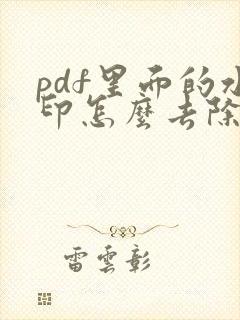 pdf里面的水
印怎麼去除
雷雲彰